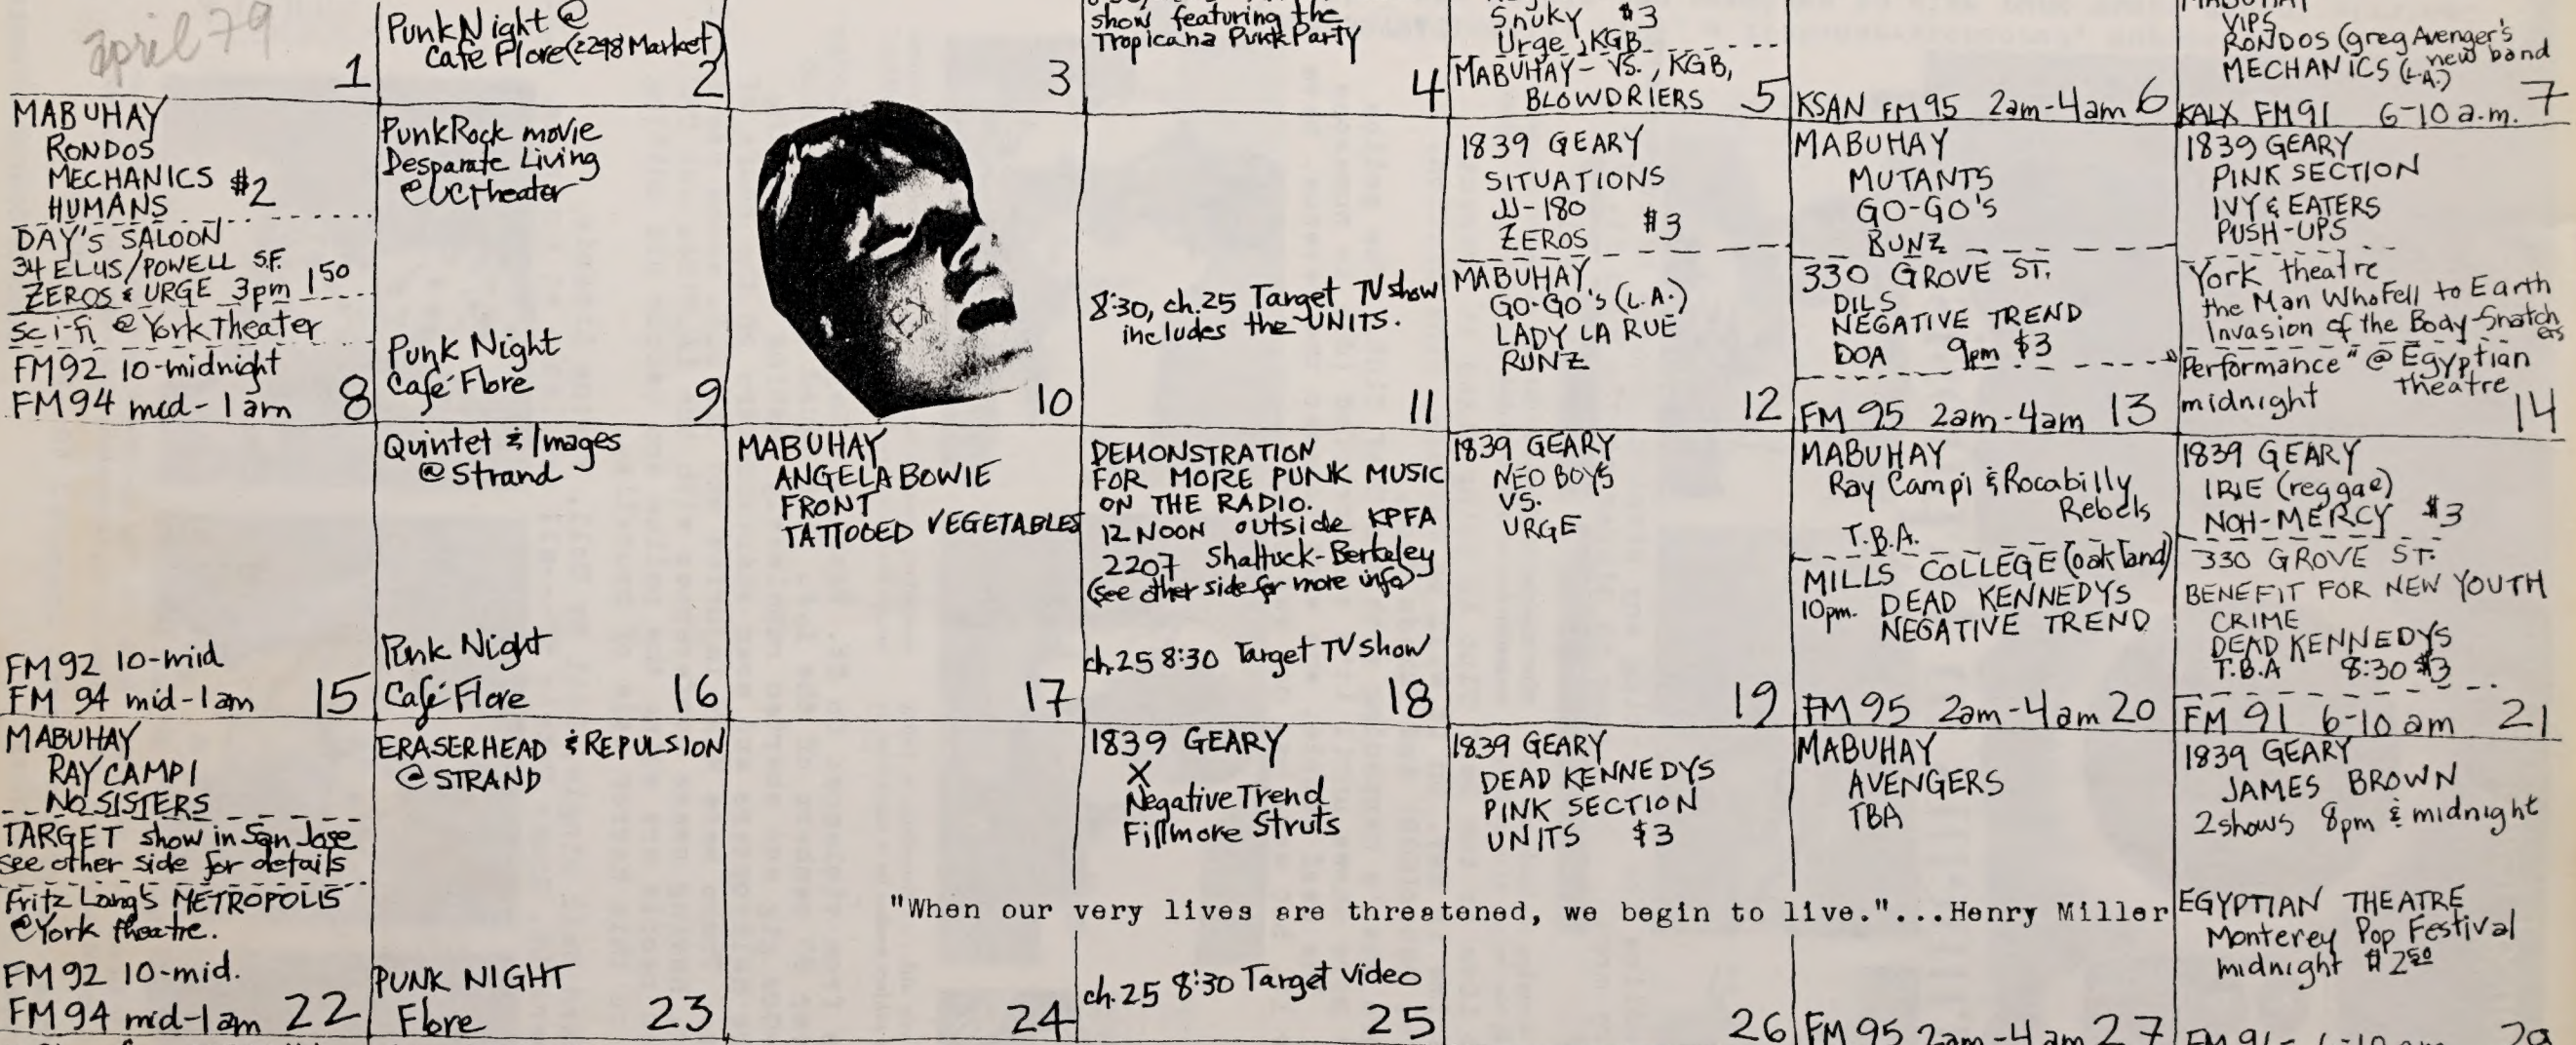 april 79
1
Punk Night @
Cafe Flore (2298 Market)
2
3
show featuring the
Tropicana Punk Party
4
Snuky $3
Urge, KGB
MABUHAY - VS., KGB,
BLOWDRIERS 5
KSAN FM 95 2am-4am 6
MABUHAY
VIPS
RONDOS (greg Avenger's
new band
MECHANICS (L.A.)
KALX FM 91 6-10 a.m. 7
MABUHAY
RONDOS
MECHANICS $2
HUMANS
DAY'S SALOON
34 ELLIS/POWELL S.F.
ZEROS & URGE 3pm 1 50
sci-fi @ York Theater
FM 92 10-midnight
FM 94 mid-1am 8
Punk Rock movie
Desparate Living
@ UC Theater
Punk Night
Café Flore 9
10
8:30, ch.25 Target TV show
includes the UNITS.
11
1839 GEARY
SITUATIONS
JJ-180
ZEROS $3
MABUHAY
GO-GO'S (L.A.)
LADY LA RUE
RUNZ
12
MABUHAY
MUTANTS
GO-GO'S
BUNZ
330 GROVE ST.
DILS
NEGATIVE TREND
DOA 9pm $3
FM 95 2am-4am 13
1839 GEARY
PINK SECTION
IVY & EATERS
PUSH-UPS
York theatre
the Man Who Fell to Earth
Invasion of the Body-Snatch
ers
"Performance" @ Egyptian
Theatre
midnight 14
FM 92 10-mid
FM 94 mid-1am 15
Quintet & Images
@ Strand
Punk Night
Café Flore 16
MABUHAY
ANGELA BOWIE
FRONT
TATTOOED VEGETABLES
17
DEMONSTRATION
FOR MORE PUNK MUSIC
ON THE RADIO.
12 NOON outside KPFA
2207 Shattuck-Berkeley
(see other side for more info)
ch.25 8:30 Target TV show
18
1839 GEARY
NEO BOYS
VS.
URGE
19
MABUHAY
Ray Campi & Rocabilly
Rebels
T.B.A.
MILLS COLLEGE (oakland)
10pm. DEAD KENNEDYS
NEGATIVE TREND
FM 95 2am-4am 20
1839 GEARY
IRIE (reggae)
NOH-MERCY $3
330 GROVE ST.
BENEFIT FOR NEW YOUTH
CRIME
DEAD KENNEDYS
T.B.A 8:30 $3
FM 91 6-10 am 21
MABUHAY
RAY CAMPI
NO SISTERS
TARGET show in San Jose
see other side for details
Fritz Lang's METROPOLIS
@ York theatre.
FM 92 10-mid.
FM 94 mid-1am 22
ERASERHEAD & REPULSION
@ STRAND
PUNK NIGHT
Flore 23
24
1839 GEARY
X
Negative Trend
Fillmore Struts
ch.25 8:30 Target Video
25
1839 GEARY
DEAD KENNEDYS
PINK SECTION
UNITS $3
26
MABUHAY
AVENGERS
TBA
FM 95 2am-4am 27
1839 GEARY
JAMES BROWN
2 shows 8pm & midnight
EGYPTIAN THEATRE
Monterey Pop Festival
midnight $2 50
"When our very lives are threatened, we begin to live."...Henry Miller